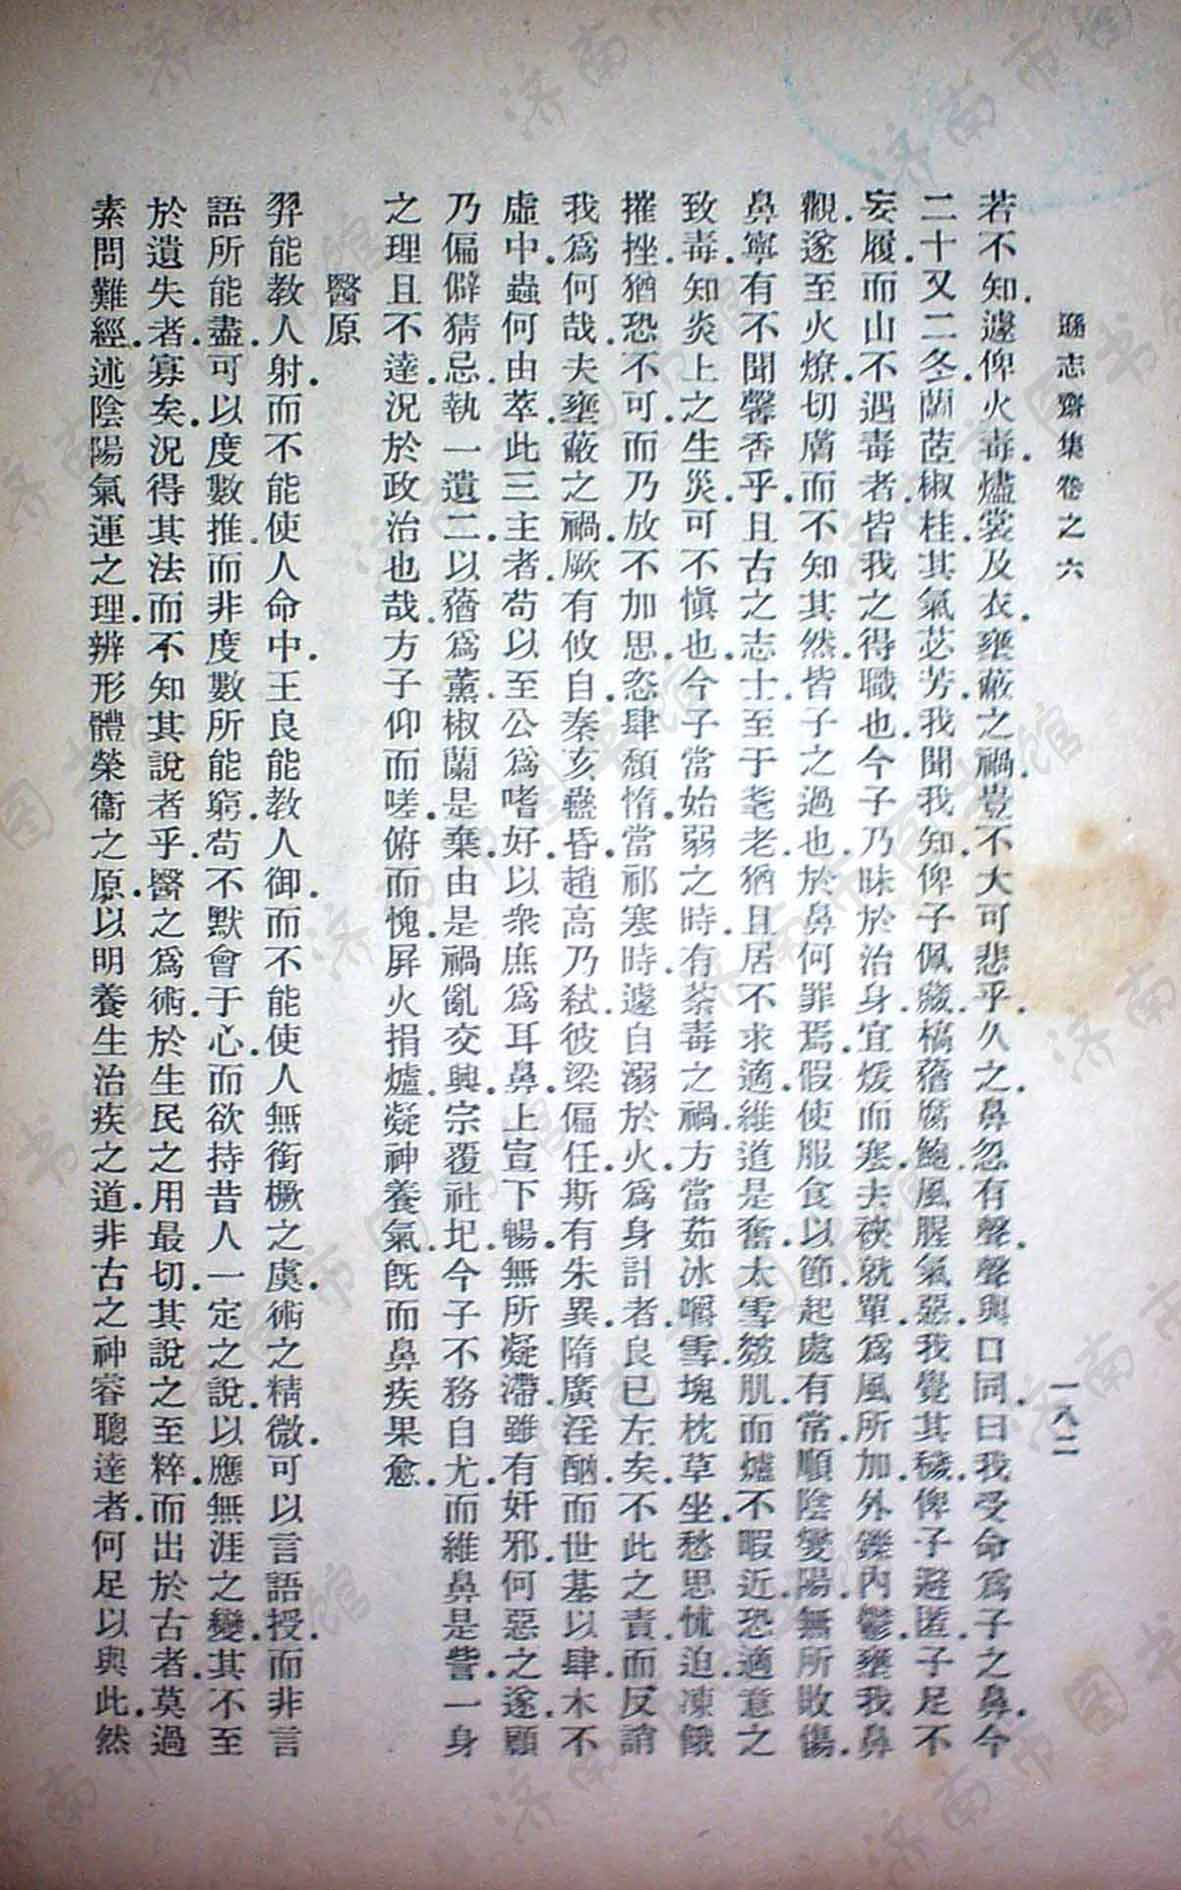 遜志齋集卷之六
一八二
若不知.遽俾火毒.燼裳及衣.壅蔽之禍.豈不大可悲乎.久之.鼻忽有聲.聲與口同.曰我受命爲子之鼻.今
二十又二冬.蘭茝椒桂.其氣苾芳.我聞我知.俾子佩藏.槁蕕腐鮑.風腥氣惡.我覺其穢.俾子避匿.子足不
妄履.而山不遇毒者.皆我之得職也.今子乃昧於治身.宜煖而寒.夫裌就單.爲風所加.外鑠內鬱.壅我鼻
觀.遂至火燎.切膚而不知其然.皆子之過也.於鼻何罪焉.假使服食以節.起處有常.順陰變陽.無所敗傷.
鼻寧有不聞馨香乎.且古之志士.至于耄老.猶且居不求適.維道是奮.太雪皴肌.而爐不暇近.恐適意之
致毒.知炎上之生災.可不愼也.今子當始弱之時.有荼毒之禍.方當茹冰嚼雪.塊枕草坐.愁思怵迫.凍餓
摧挫.猶恐不可.而乃放不加思.恣肆頹惰.當祁寒時.遽自溺於火.爲身計者.良已左矣.不此之責.而反誚
我爲何哉.夫壅蔽之禍.厥有攸自.秦亥蠱昏.趙高乃弑.彼梁偏任.斯有朱異.隋廣淫酗.而世基以肆.木不
虛中.蟲何由萃.此三主者.苟以至公爲嗜好.以衆庶爲耳鼻.上宣下暢.無所凝滯.雖有奸邪.何惡之遂.顧
乃偏僻猜忌.執一遺二.以蕕爲薰.椒蘭是棄.由是禍亂交興.宗覆社圮.今子不務自尤.而維鼻是訾.一身
之理且不達.況於政治也哉.方子仰而嗟.俯而愧.屏火捐爐.凝神養氣.旣而鼻疾果愈.
醫原
羿能教人射.而不能使人命中.王良能教人御.而不能使人無銜橛之虞.術之精微.可以言語授.而非言
語所能盡.可以度數推.而非度數所能窮.苟不默會于心.而欲持昔人一定之說.以應無涯之變.其不至
於遺失者.寡矣.況得其法而不知其說者乎.醫之爲術.於生民之用最切.其說之至粹.而出於古者.莫過
素問難經.述陰陽氣運之理.辨形體榮衞之原.以明養生治疾之道.非古之神睿聰達者.何足以與此.然